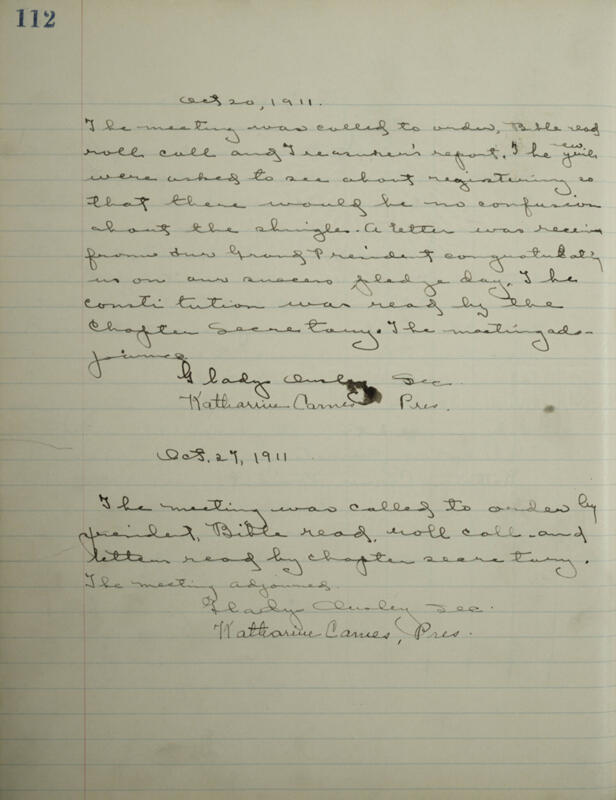 112
Oct 20, 1911.
The meeting was called to order, Bible read
roll call and Treasurer's report. The new girls
were asked to see about registering so
that there would be no confusion
about the shingles. A letter was receiv
from our Grand President congratulating
us on our success pledge day. The
constitution was read by the
Chapter Secretary. The meeting ad-
journed.
Gladys Sec.
Katharine Carnes Pres.
Oct. 27, 1911
The meeting was called to order by
president, Bible read, roll call and
letters read by chapter secretary.
The meeting adjourned.
Gladys Sec.
Katharine Carnes, Pres.